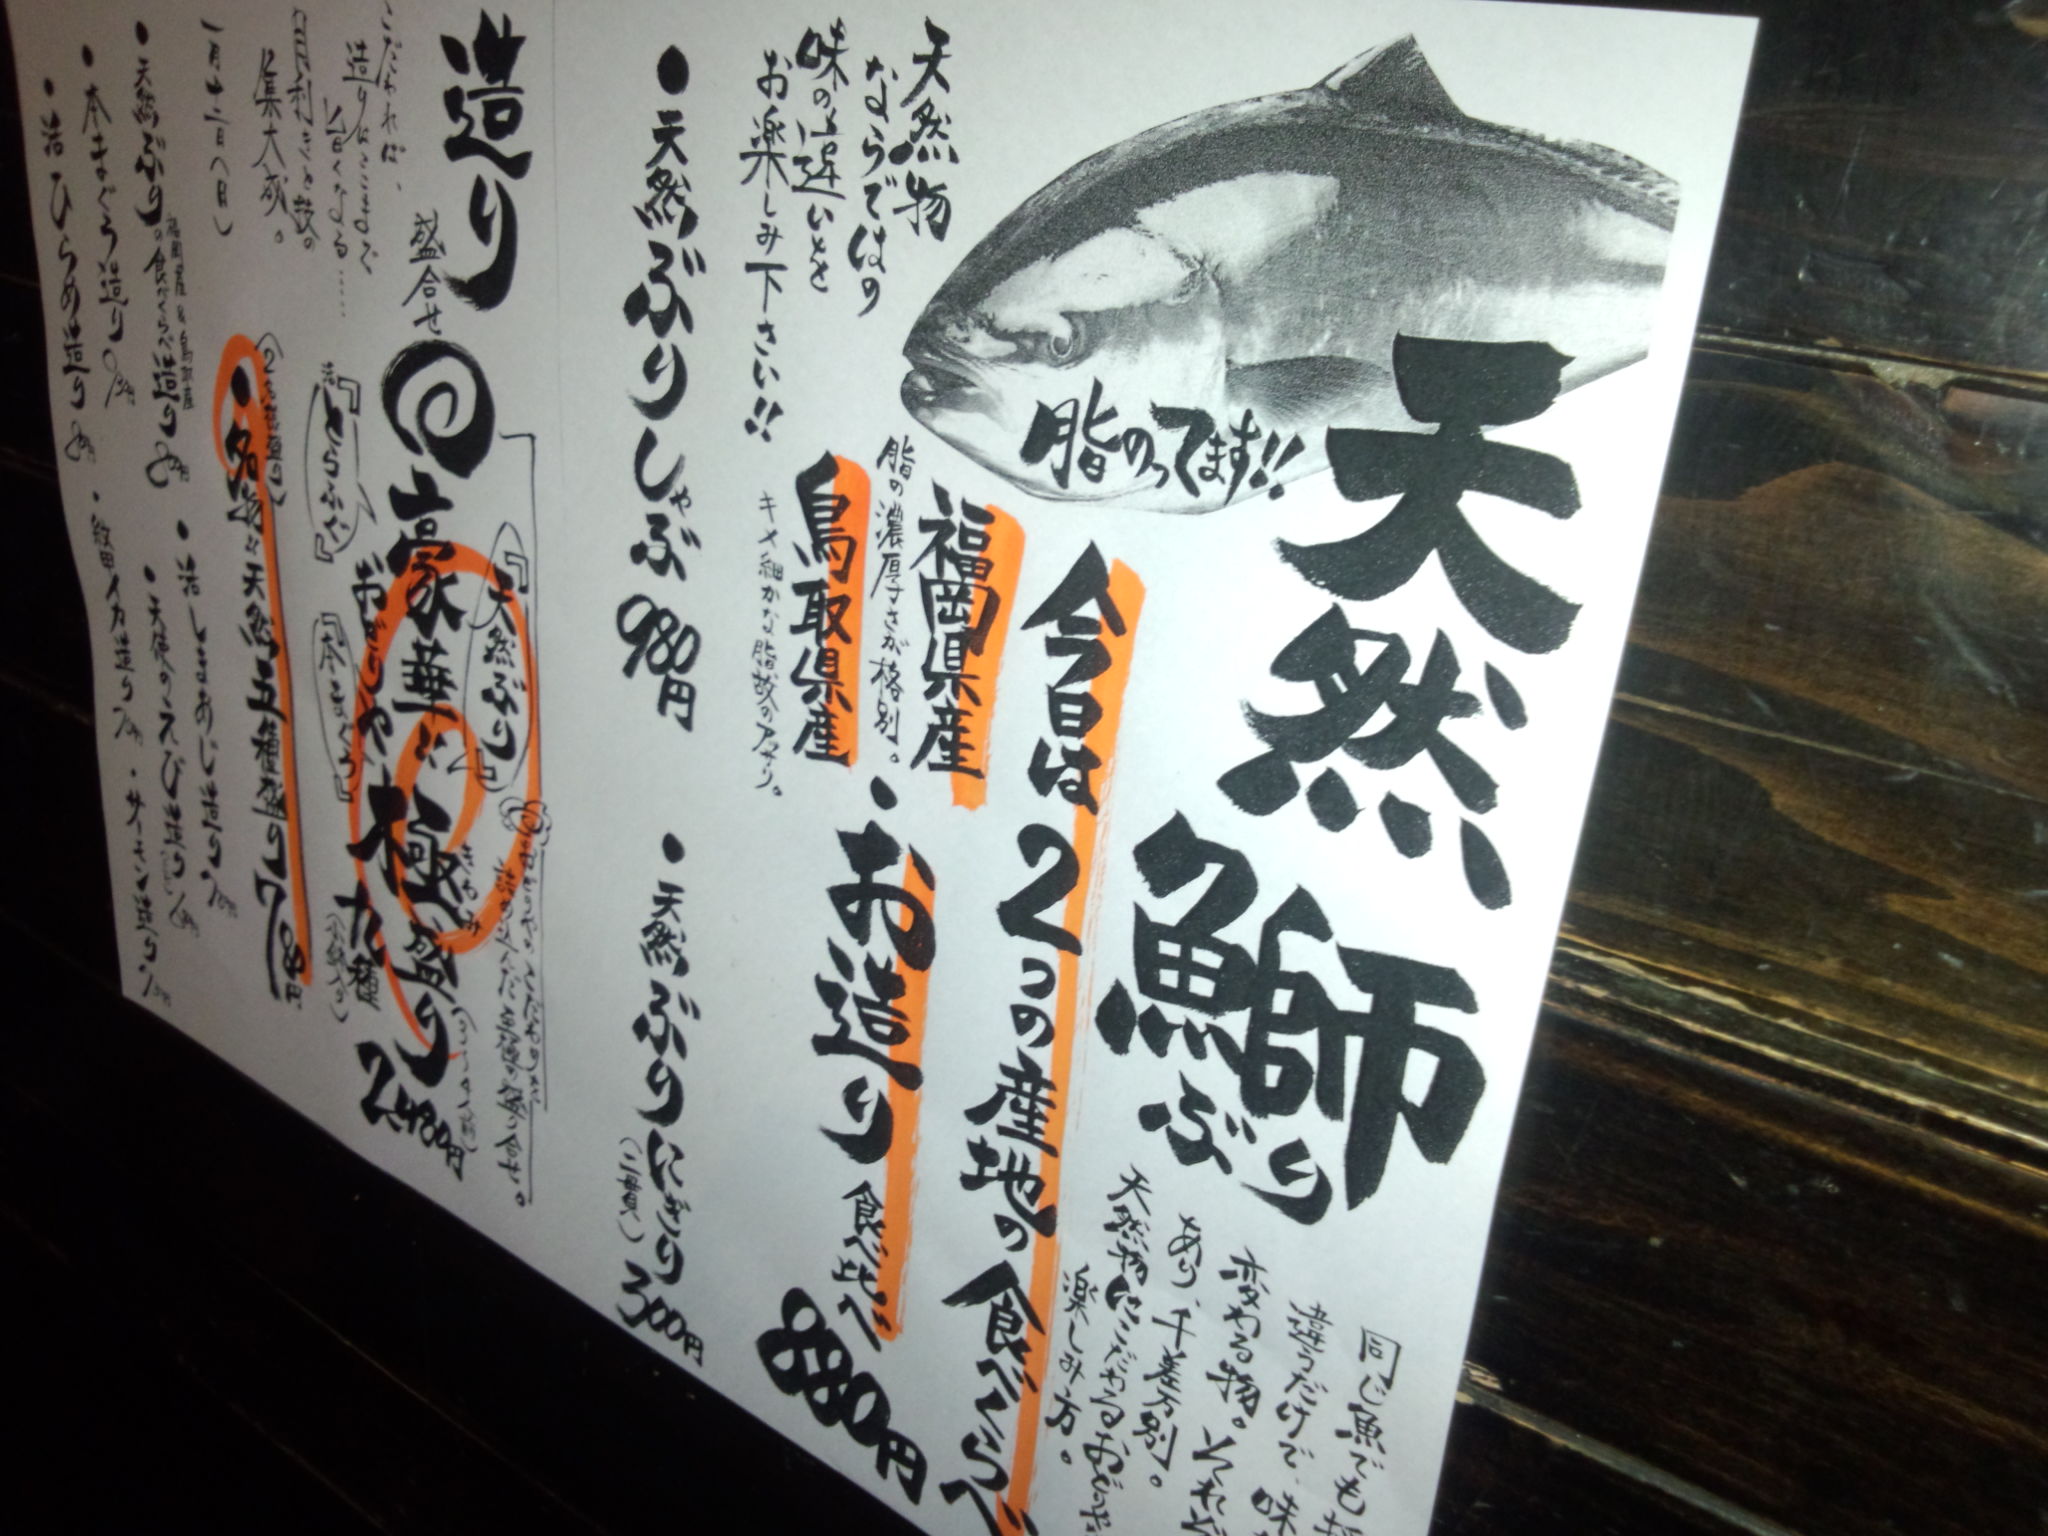 天然
鰤
ぶり
脂のってます!!
同じ魚でも
違うだけで、味
変わる物。それ
あり、千差万別。
天然物にこだわるおじの
楽しみ方。
今日は2つの産地の食べくらべ
天然物
ならではの
味の違いを
お楽しみ下さい!!
福岡県産
脂の濃厚さが格別。
鳥取県産
キメ細かな脂故のアマリ。
・お造り 食べ比べ 880円
・天然ぶりしゃぶ 980円
・天然ぶりにぎり(二貫) 300円
造り
盛合せ
こだわれば、
造りはここまで
旨くなる……
目利きと技の
集大成。
一月十二日(日)
豪華な極盛り
おがりや
九種
2480円
『天然ぶり』
活『とらふぐ』
『本まぐろ』
・名物!!天然五種盛り 780円
・天然ぶりの食べくらべ造り
福岡産&鳥取産
・本まぐろ造り
・活ひらめ造り
・活しまあじ造り
・天使のえび造り
・紋甲イカ造り
・サーモン造り